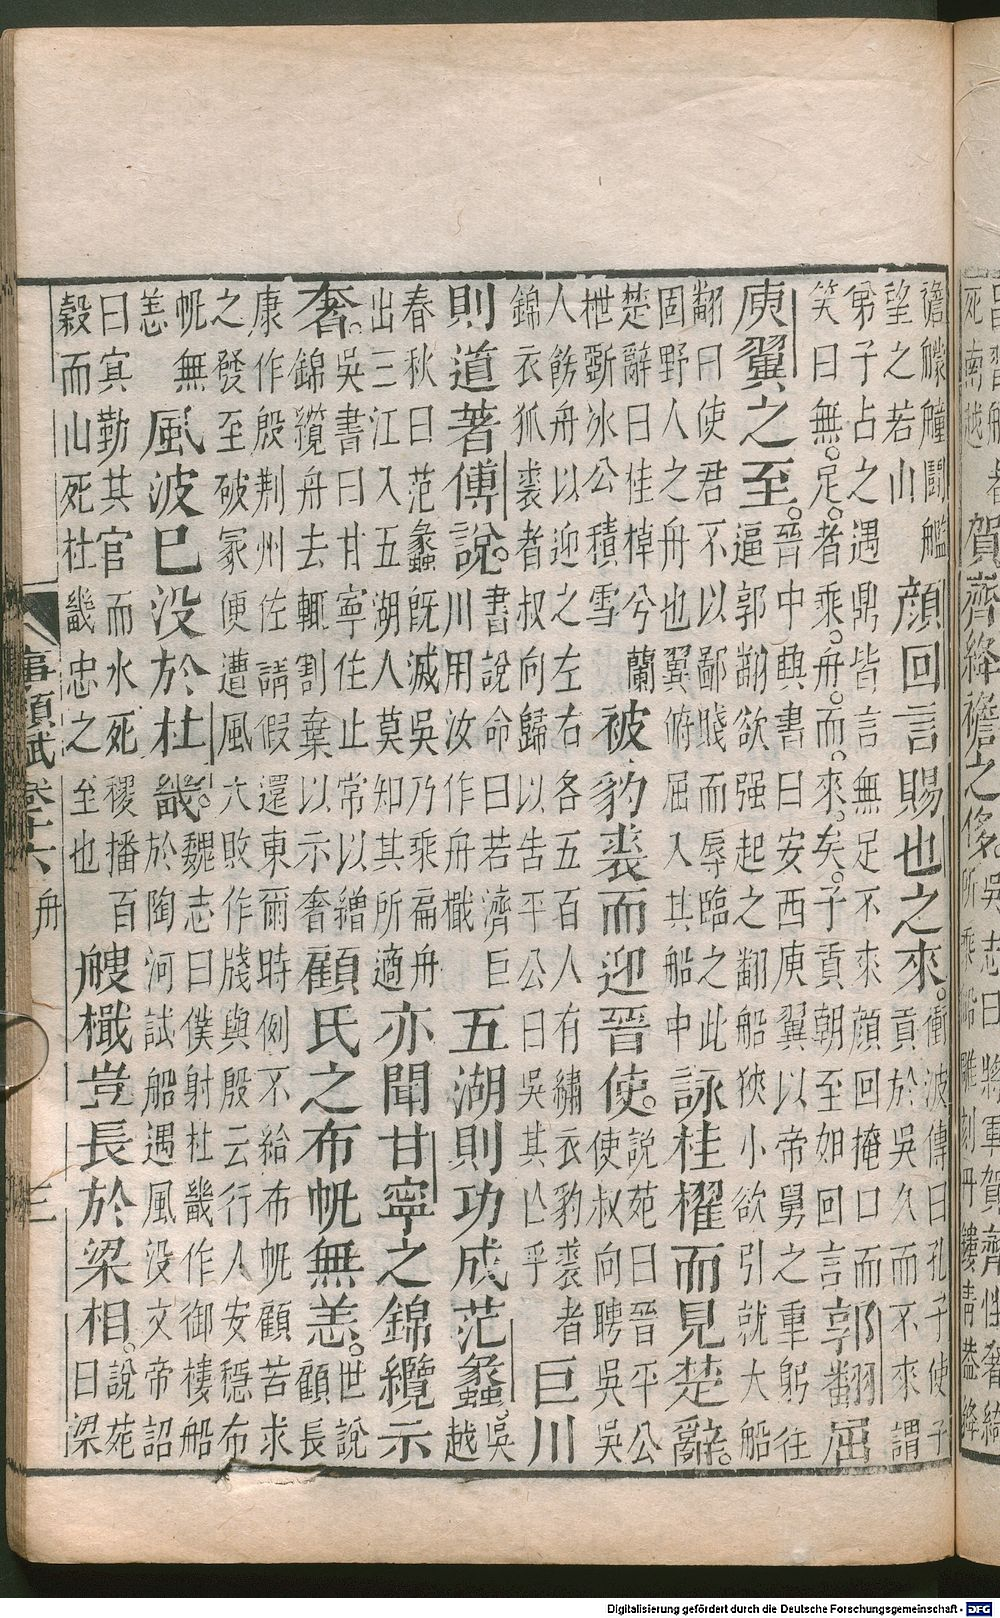 賀齊絳襜之侈
吳志曰將軍賀齊性奢綺
所乘船雕刻丹鏤青蓋絳
襜艨艟鬭艦
望之若山
顔回言賜也之來。
衝波傳曰孔子使子
貢於吳久而不來謂
弟子占之遇鼎皆言無足不來顔回掩口而
笑曰無足。者乘。舟。而。來。矣。子貢朝至如回言
郭翻屈
庾翼之至。
晉中興書曰安西庾翼以帝舅之重躬往
逼郭翻欲强起之翻船狹小欲引就大船
翻曰使君不以鄙賤而辱臨之此
固野人之舟也翼俯屈入其船中
詠桂櫂而見楚辭。
楚辭曰桂棹兮蘭
枻斵冰公積雪
被豹裘而迎晉使。
說苑曰晉平公
使叔向聘吳吳
人餝舟以迎之左右各五百人有繡衣豹裘者
錦衣狐裘者叔向歸以告平公曰吳其亡乎
巨川
則道著傅說。
書說命曰若濟巨
川用汝作舟檝
五湖則功成范蠡。
吳
越
春秋曰范蠡旣滅吳乃乘扁舟
出三江入五湖人莫知其所適
亦聞甘寧之錦纜示
奢。
吳書曰甘寧住止常以繒
錦纜舟去輒割棄以示奢
顧氏之布帆無恙。
世說
顧長
康作殷荆州佐請假還東爾時例不給布帆顧苦求
之發至破冢便遭風大敗作牋與殷云行人安穩布
帆無
恙
風波已没於杜畿。
魏志曰僕射杜畿作御樓船
於陶河試船遇風没文帝詔
曰㝠勤其官而水死稷播百
穀而山死杜畿忠之至也
艘檝豈長於梁相。
說苑
曰梁
事類賦卷十六 舟 三
Digitalisierung gefördert durch die Deutsche Forschungsgemeinschaft - DFG